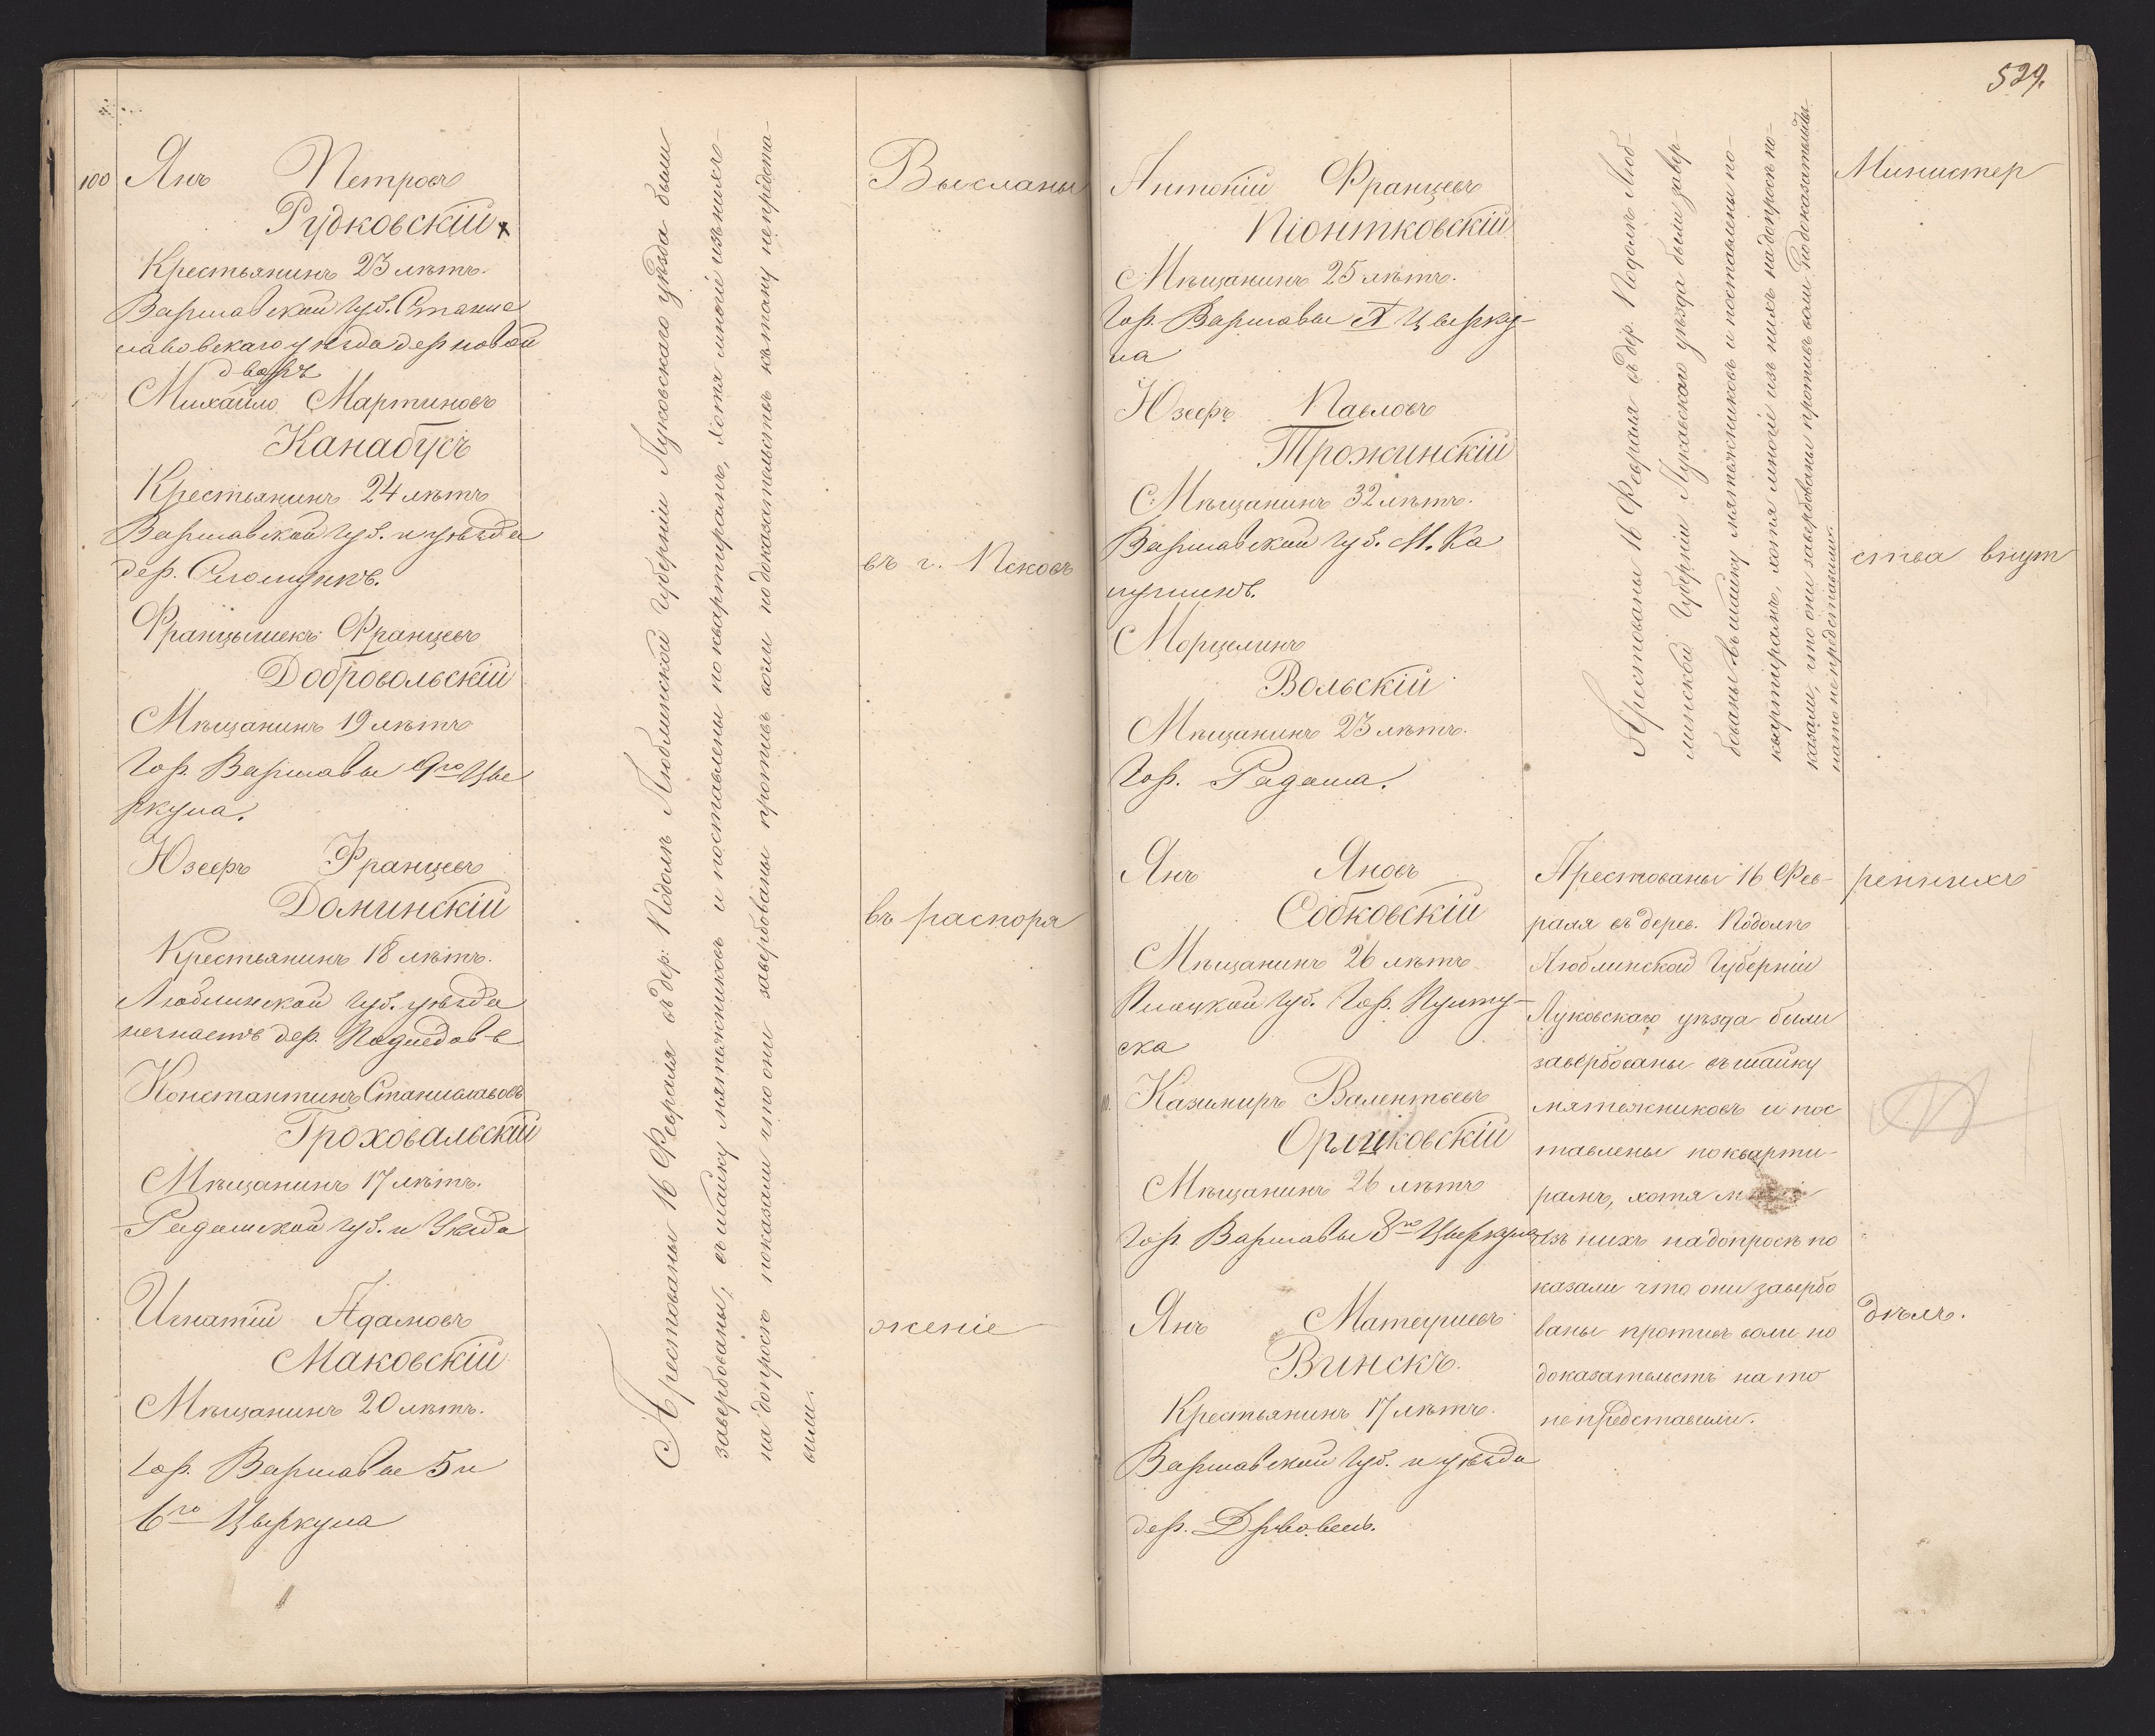 100 Янъ Петровъ
Рудковскій
Крестьянинъ 23 лѣтъ.
Варшавской губ. Станис
лавовскаго уѣзда дер новой
дворъ
Михайло Мартиновъ
Канабусъ
Крестьянинъ 24 лѣтъ
Варшавской губ. и уѣзда
дер.
Францышекъ Францевъ
Добровольскій
Мѣщанинъ 19 лѣтъ
Гор. Варшавы 9го Цы
ркула.
Юзефъ Францевъ
Доминскій
Крестьянинъ 18 лѣтъ.
Люблинской губ. уѣзда
дер.
Константинъ Станиславовъ
Гроховальскій
Мѣщанинъ 17 лѣтъ.
Радомской губ. и Уѣзда
Игнатій Адамовъ
Маковскій
Мѣщанинъ 20 лѣтъ.
Гор. Варшавы 5 и
6го Цыркула
Арестованы 16 Февраля въ дер: Подолѣ Люблинской Губерніи Луковскаго уѣзда были
завербованы, въ шайку мятежниковъ и поставлены по квартирамъ, хотя многіе изъ нихъ
на допросѣ показали что они завербованы противъ воли но доказательствъ къ тому не предста-
вили.
Высланы
въ г. Псковъ
въ распоря
женіе
529.
Антоній Францевъ
Піонтковскій
Мѣщанинъ 25 лѣтъ.
Гор. Варшавы Цырку-
ла
Юзефъ Павловъ
Трожинскій
Мѣщанинъ 32 лѣтъ.
Варшавской губ. М. Ка
Морцелинъ
Вольскій
Мѣщанинъ 23 лѣтъ.
Гор. Радома.
Янъ Яновъ
Собковскій
Мѣщанинъ 26 лѣтъ
Плоцкой губ. Гор. Пулту-
ска
Казимиръ Валентьевъ
Орликовскій
Мѣщанинъ 26 лѣтъ
Гор. Варшавы 8го Цыркула
Янъ Матеушевъ
Винскъ.
Крестьянинъ 17 лѣтъ.
Варшавской Губ. и уѣзда
дер.
Арестованы 16 Февраля въ дер. Подолѣ Люб-
линской Губерніи Луковскаго уѣзда были завер-
бованы въ шайку мятежниковъ и поставлены по
квартирамъ, хотя многіе изъ нихъ на допросѣ по-
казали, что они завербованы противъ воли но доказательствъ
на то не представили.
Арестованы 16 Фев-
раля въ дерев. Подолѣ
Люблинской Губерніи
Луковскаго уѣзда были
завербованы въ шайку
мятежниковъ и пос
тавлены по кварти-
рамъ, хотя
изъ нихъ на допросѣ по
казали что они завербо
ваны противъ воли но
доказательствъ на то
не представили.
Министер
ства внут
реннихъ
дѣлъ.